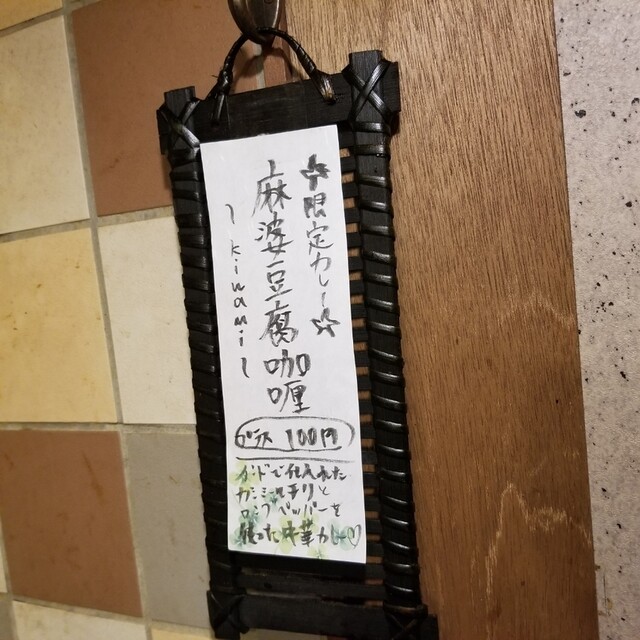 ☆限定カレー☆
麻婆豆腐咖喱
～kinami～
プラス 100円
インドで仕入れた
カシミリチリと
ロングペッパーを
使った中華カレー♡